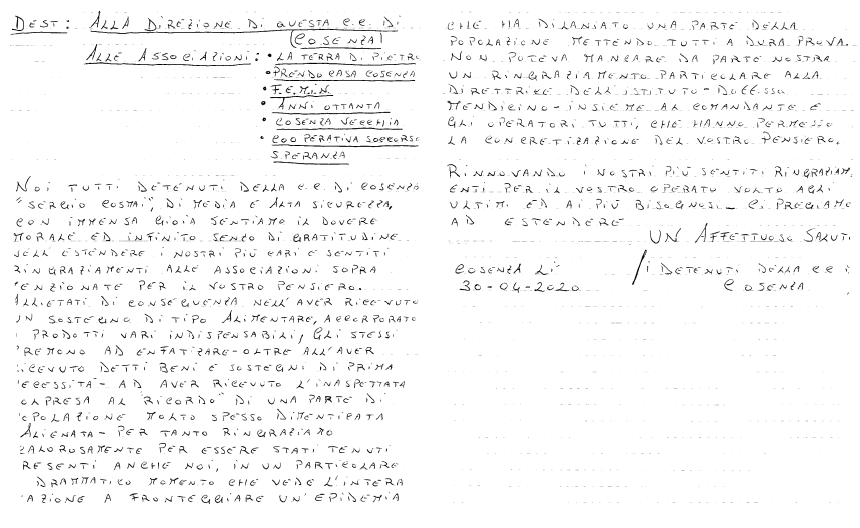 DEST: ALLA DIREZIONE DI QUESTA C.C. DI
(COSENZA)
ALLE ASSOCIAZIONI: • LA TERRA DI PIETRO
• PRENDO CASA COSENZA
• F.E.M.I.N.
• ANNI OTTANTA
• COSENZA VECCHIA
• COOPERATIVA SOCCORSO
SPERANZA
NOI TUTTI DETENUTI DELLA C.C. DI COSENZA
"SERGIO COSMAI", DI MEDIA E ALTA SICUREZZA,
CON IMMENSA GIOIA SENTIAMO IL DOVERE
MORALE ED INFINITO SENSO DI GRATITUDINE
NELL'ESTENDERE I NOSTRI PIÙ CARI E SENTITI
RINGRAZIAMENTI ALLE ASSOCIAZIONI SOPRA
ENZIONATE PER IL VOSTRO PENSIERO.
ALLIETATI DI CONSEGUENZA NELL'AVER RICEVUTO
UN SOSTEGNO DI TIPO ALIMENTARE, ACCORPORATO
I PRODOTTI VARI INDISPENSABILI, GLI STESSI
REMONO AD ENFATIZARE-OLTRE ALL'AVER
ICEVUTO DETTI BENI E SOSTEGNI DI PRIMA
ECESSITÀ- AD AVER RICEVUTO L'INASPETTATA
ORPRESA AL "RICORDO" DI UNA PARTE DI
OPOLAZIONE MOLTO SPESSO DIMENTICATA
ALIENATA- PER TANTO RINGRAZIAMO
CALOROSAMENTE PER ESSERE STATI TENUTI
RESENTI ANCHE NOI, IN UN PARTICOLARE
DRAMMATICO MOMENTO CHE VEDE L'INTERA
AZIONE A FRONTEGGIARE UN'EPIDEMIA
CHE HA DILANIATO UNA PARTE DELLA
POPOLAZIONE METTENDO TUTTI A DURA PROVA.
NON POTEVA MANCARE DA PARTE NOSTRA
UN RINGRAZIAMENTO PARTICOLARE ALLA
DIRETTRICE DELL'ISTITUTO- DOTT.SSA
MENDICINO- INSIEME AL COMANDANTE E
GLI OPERATORI TUTTI, CHE HANNO PERMESSO
LA CONCRETIZAZIONE DEL VOSTRO PENSIERO.
RINNOVANDO I NOSTRI PIÙ SENTITI RINGRAZIAM-
ENTI PER IL VOSTRO OPERATO VOLTO AGLI
ULTIMI ED AI PIÙ BISOGNOSI- CI PREGIAMO
AD ESTENDERE
UN AFFETTUOSO SALUTI
COSENZA LÌ
30-04-2020
/I DETENUTI DELLA C.C.I
COSENZA